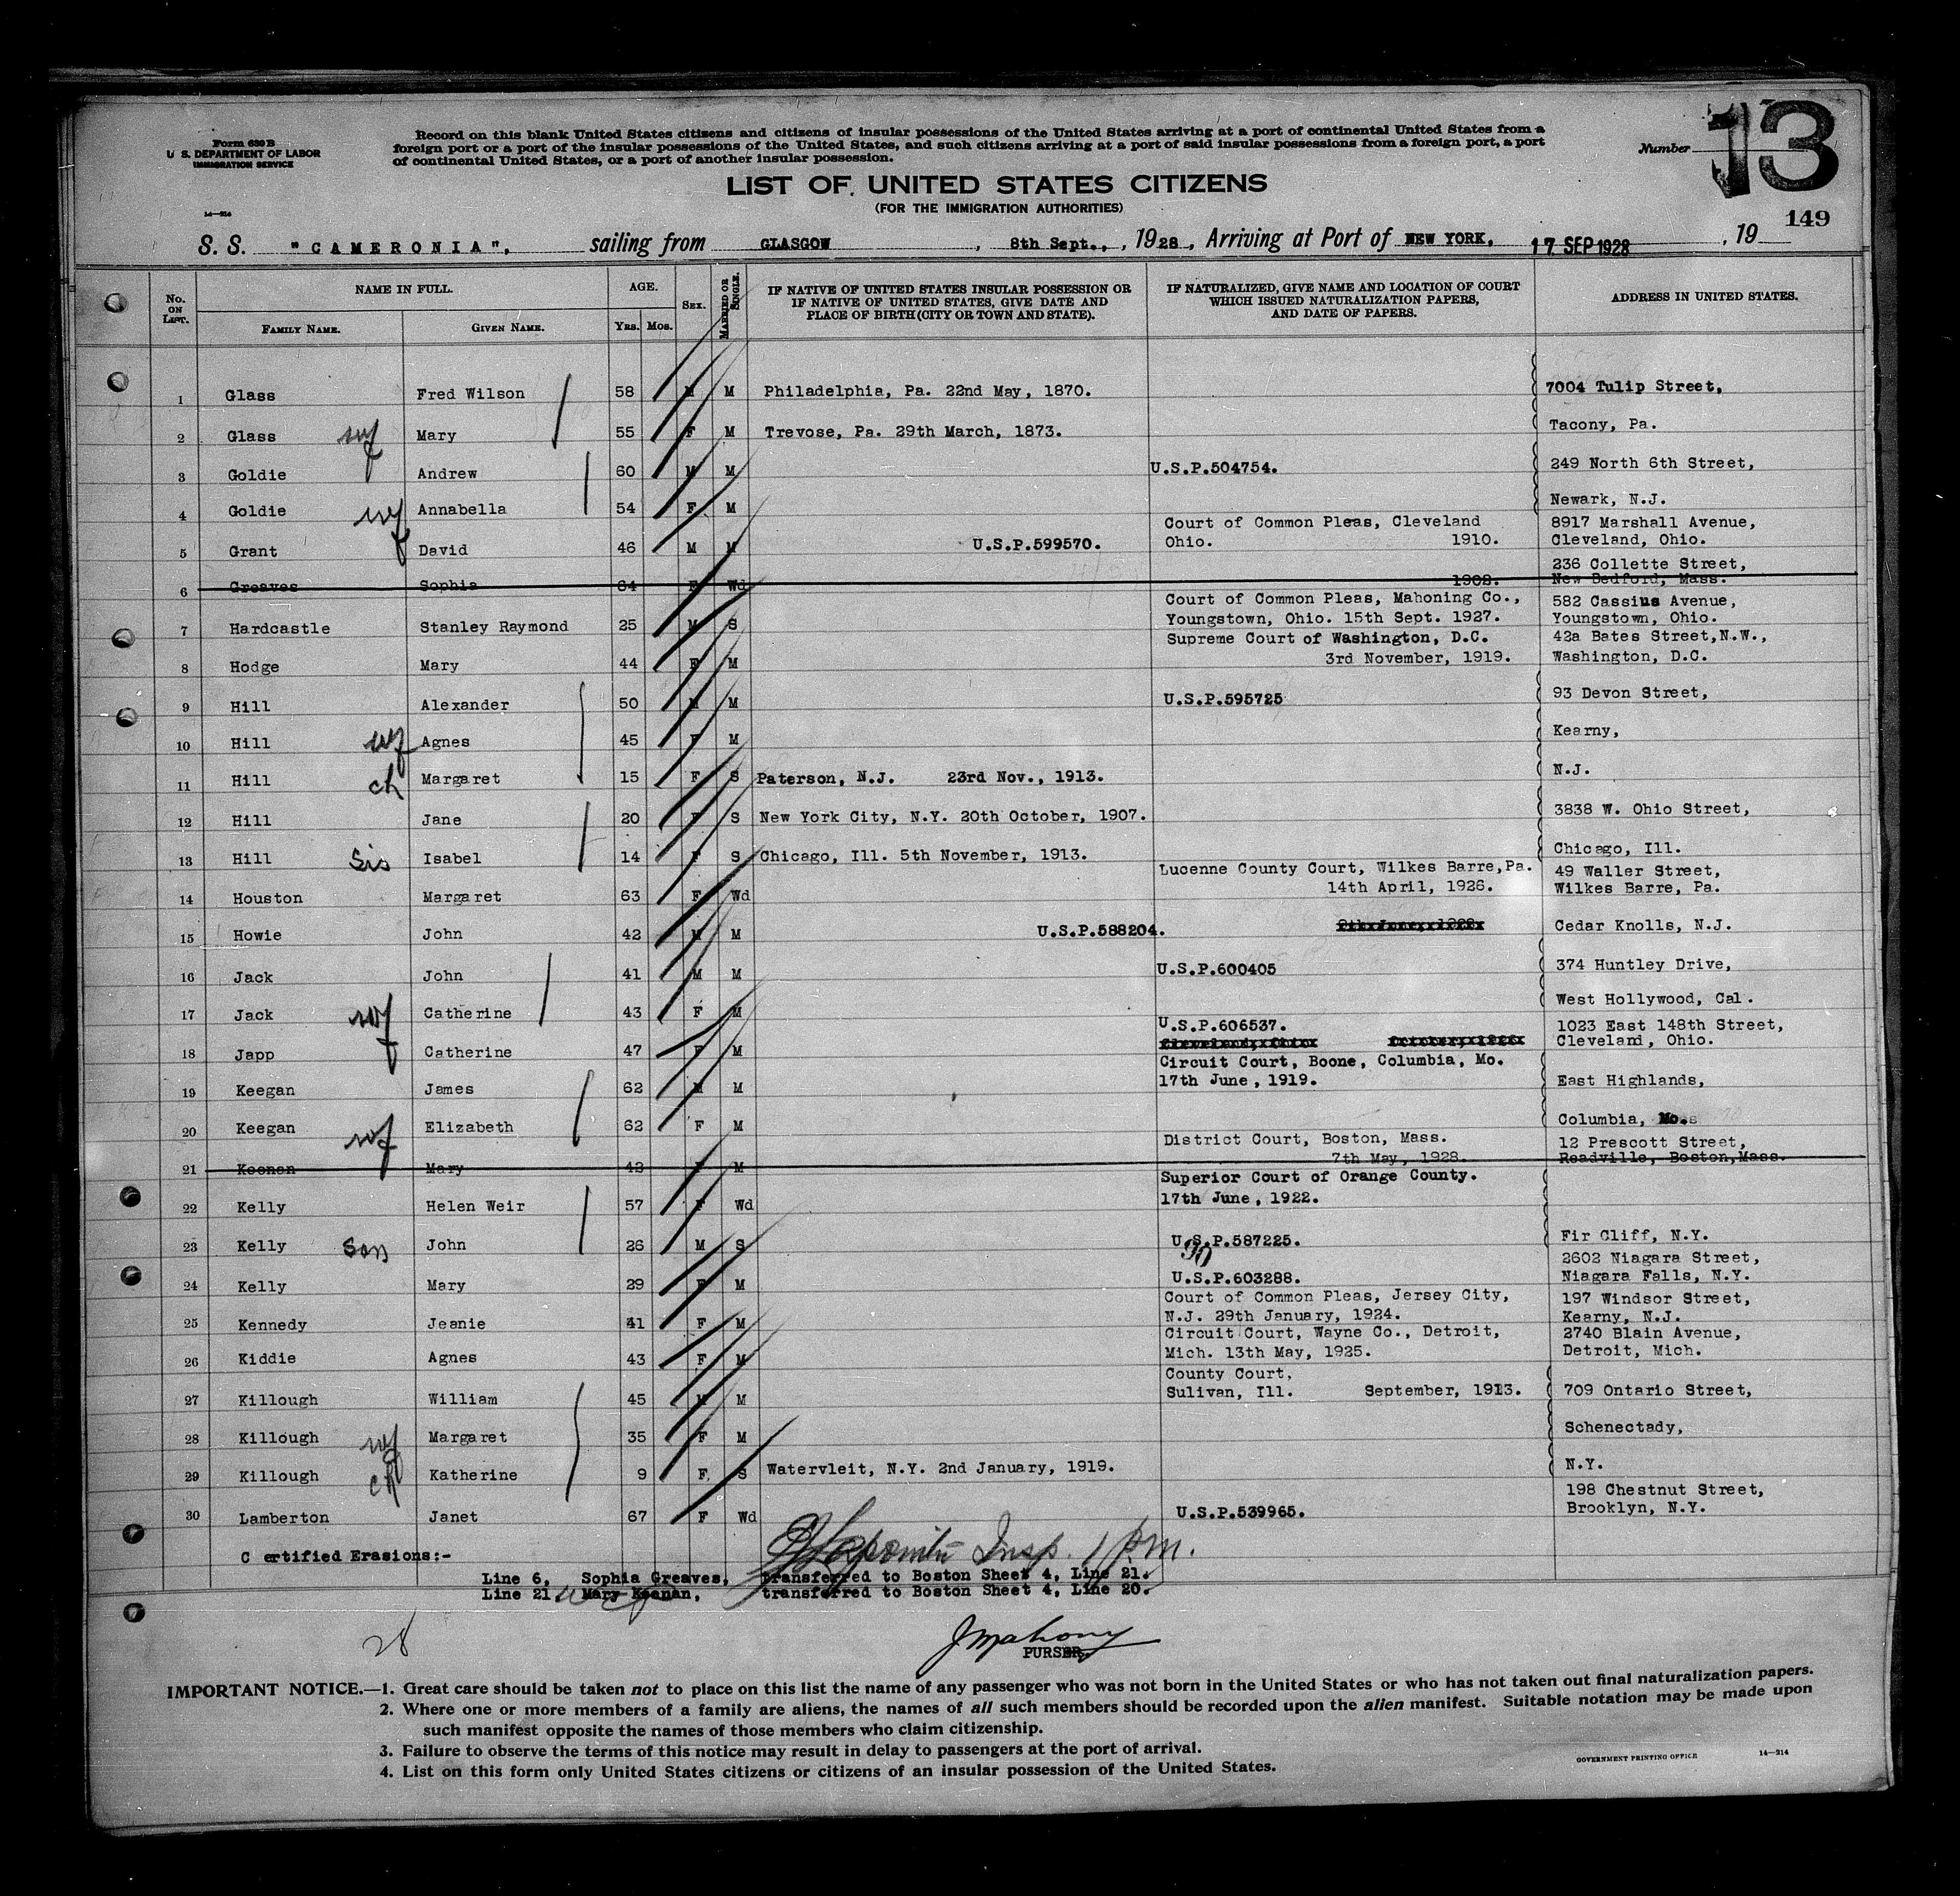 Form 630 B
U. S. DEPARTMENT OF LABOR
IMMIGRATION SERVICE
14—214
Record on this blank United States citizens and citizens of insular possessions of the United States arriving at a port of continental United States from a
foreign port or a port of the insular possessions of the United States, and such citizens arriving at a port of said insular possessions from a foreign port, a port
of continental United States, or a port of another insular possession.
Number 13
LIST OF UNITED STATES CITIZENS
(FOR THE IMMIGRATION AUTHORITIES)
149
S. S. "CAMERONIA", sailing from GLASGOW, 8th Sept., 1928, Arriving at Port of NEW YORK, 17 SEP 1928, 19
No. ON LIST. NAME IN FULL. AGE. SEX. MARRIED OR SINGLE. IF NATIVE OF UNITED STATES INSULAR POSSESSION OR IF NATIVE OF UNITED STATES, GIVE DATE AND PLACE OF BIRTH (CITY OR TOWN AND STATE). IF NATURALIZED, GIVE NAME AND LOCATION OF COURT WHICH ISSUED NATURALIZATION PAPERS, AND DATE OF PAPERS. ADDRESS IN UNITED STATES.
FAMILY NAME. GIVEN NAME. YRS. MOS.
1 Glass Fred Wilson 58 M M Philadelphia, Pa. 22nd May, 1870. 7004 Tulip Street,
2 Glass wf Mary 55 F M Trevose, Pa. 29th March, 1873. Tacony, Pa.
3 Goldie Andrew 60 M M U.S.P.504754. 249 North 6th Street,
4 Goldie wf Annabella 54 F M Newark, N.J.
Court of Common Pleas, Cleveland 8917 Marshall Avenue,
5 Grant David 46 M M U.S.P.599570. Ohio. 1910. Cleveland, Ohio.
236 Collette Street,
6 Greaves Sophia 64 F Wd 1902. New Bedford, Mass.
Court of Common Pleas, Mahoning Co., 582 Cassius Avenue,
7 Hardcastle Stanley Raymond 25 M S Youngstown, Ohio. 15th Sept. 1927. Youngstown, Ohio.
Supreme Court of Washington, D.C. 42a Bates Street,N.W.,
8 Hodge Mary 44 F M 3rd November, 1919. Washington, D.C.
9 Hill Alexander 50 M M U.S.P.595725 93 Devon Street,
10 Hill wf Agnes 45 F M Kearny,
11 Hill ch Margaret 15 F S Paterson, N.J. 23rd Nov., 1913. N.J.
12 Hill Jane 20 F S New York City, N.Y. 20th October, 1907. 3838 W. Ohio Street,
13 Hill Sis Isabel 14 F S Chicago, Ill. 5th November, 1913. Chicago, Ill.
Lucenne County Court, Wilkes Barre,Pa. 49 Waller Street,
14 Houston Margaret 63 F Wd 14th April, 1926. Wilkes Barre, Pa.
15 Howie John 42 M M U.S.P.588204. Cedar Knolls, N.J.
16 Jack John 41 M M U.S.P.600405 374 Huntley Drive,
17 Jack wf Catherine 43 F M West Hollywood, Cal.
U.S.P.606537. 1023 East 148th Street,
18 Japp Catherine 47 F M Cleveland, Ohio.
Circuit Court, Boone, Columbia, Mo.
19 Keegan James 62 M M 17th June, 1919. East Highlands,
20 Keegan wf Elizabeth 62 F M Columbia, Mo.
District Court, Boston, Mass. 12 Prescott Street,
21 Keenan Mary 42 F M 7th May, 1928. Readville, Boston,Mass.
Superior Court of Orange County.
22 Kelly Helen Weir 57 F Wd 17th June, 1922.
23 Kelly Son John 26 M S U.S.P.587225. Fir Cliff, N.Y.
2602 Niagara Street,
24 Kelly Mary 29 F M U.S.P.603288. Niagara Falls, N.Y.
Court of Common Pleas, Jersey City, 197 Windsor Street,
25 Kennedy Jeanie 41 F M N.J. 29th January, 1924. Kearny, N.J.
Circuit Court, Wayne Co., Detroit, 2740 Blain Avenue,
26 Kiddie Agnes 43 F M Mich. 13th May, 1925. Detroit, Mich.
County Court,
27 Killough William 45 M M Sulivan, Ill. September, 1913. 709 Ontario Street,
28 Killough wf Margaret 35 F M Schenectady,
29 Killough ch Katherine 9 F S Watervleit, N.Y. 2nd January, 1919. N.Y.
198 Chestnut Street,
30 Lamberton Janet 67 F Wd U.S.P.539965. Brooklyn, N.Y.
Insp. 1 P.m.
C ertified Erasions:-
Line 6, Sophia Greaves, transferred to Boston Sheet 4, Line 21.
Line 21 Mary Keenan, transferred to Boston Sheet 4, Line 20.
28
JMahony
PURSER.
IMPORTANT NOTICE.—1. Great care should be taken not to place on this list the name of any passenger who was not born in the United States or who has not taken out final naturalization papers.
2. Where one or more members of a family are aliens, the names of all such members should be recorded upon the alien manifest. Suitable notation may be made upon
such manifest opposite the names of those members who claim citizenship.
3. Failure to observe the terms of this notice may result in delay to passengers at the port of arrival.
4. List on this form only United States citizens or citizens of an insular possession of the United States.
GOVERNMENT PRINTING OFFICE 14—214